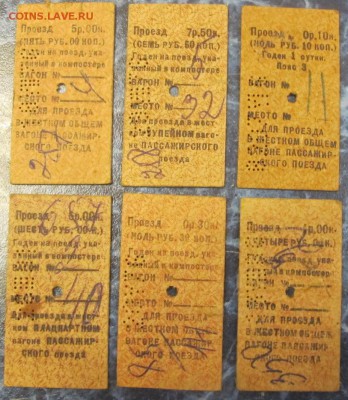 COINS.LAVE.RU
Проезд 5р.00к.
(ПЯТЬ РУБ. 00 КОП.)
Годен на поезд, ука-
занный в компостере
ВАГОН №
МЕСТО №
ДЛЯ ПРОЕЗДА
В ЖЕСТКОМ ОБЩЕМ
ВАГОНЕ ПАССАЖИР-
СКОГО ПОЕЗДА
Проезд 7р.50к.
(СЕМЬ РУБ. 50 КОП.)
Годен на поезд, ука-
занный в компостере
ВАГОН №
МЕСТО № 32
Для проезда в жест-
ком КУПЕЙНОМ ваго-
не ПАССАЖИРСКОГО
поезда
Проезд 0р.10к.
(НОЛЬ РУБ. 10 КОП.)
Годен 1 сутки.
Пояс
ВАГОН №
МЕСТО №
ДЛЯ ПРОЕЗДА
В ЖЕСТКОМ ОБЩЕМ
ВАГОНЕ ПАССАЖИР-
СКОГО ПОЕЗДА
Проезд 6р.00к.
(ШЕСТЬ РУБ. 00 К.)
Годен на поезд, ука-
занный в компостере
ВАГОН №
МЕСТО №
Для проезда в жест-
ком ПЛАЦКАРТНОМ
вагоне ПАССАЖИР-
СКОГО поезда
Проезд 0р.30к.
(НОЛЬ РУБ. 30 КОП.)
Годен на поезд, ука-
занный в компостере
ВАГОН №
МЕСТО №
ДЛЯ ПРОЕЗДА
В ЖЕСТКОМ ОБЩЕМ
ВАГОНЕ ПАССАЖИР-
СКОГО ПОЕЗДА
Проезд
Годен на поезд, ука-
занный в компостере
ВАГОН №
МЕСТО №
ДЛЯ ПРОЕЗДА
В ЖЕСТКОМ ОБЩЕМ
ВАГОНЕ ПАССАЖИР-
СКОГО ПОЕЗДА